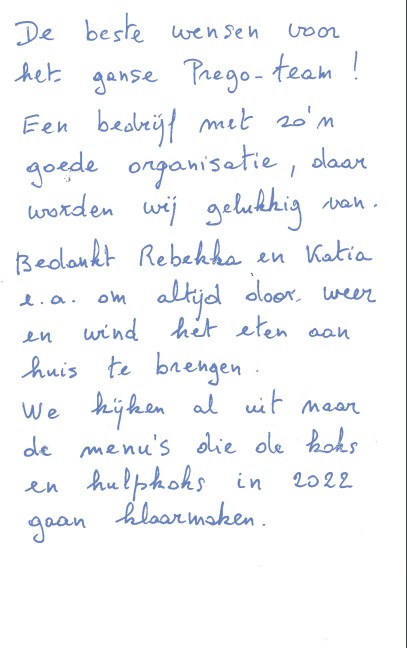 De beste wensen voor
het ganse Prego-team !
Een bedrijf met zo'n
goede organisatie, daar
worden wij gelukkig van.
Bedankt Rebekka en Katia
e.a. om altijd door weer
en wind het eten aan
huis te brengen.
We kijken al uit naar
de menu's die de koks
en hulpkoks in 2022
gaan klaarmaken.